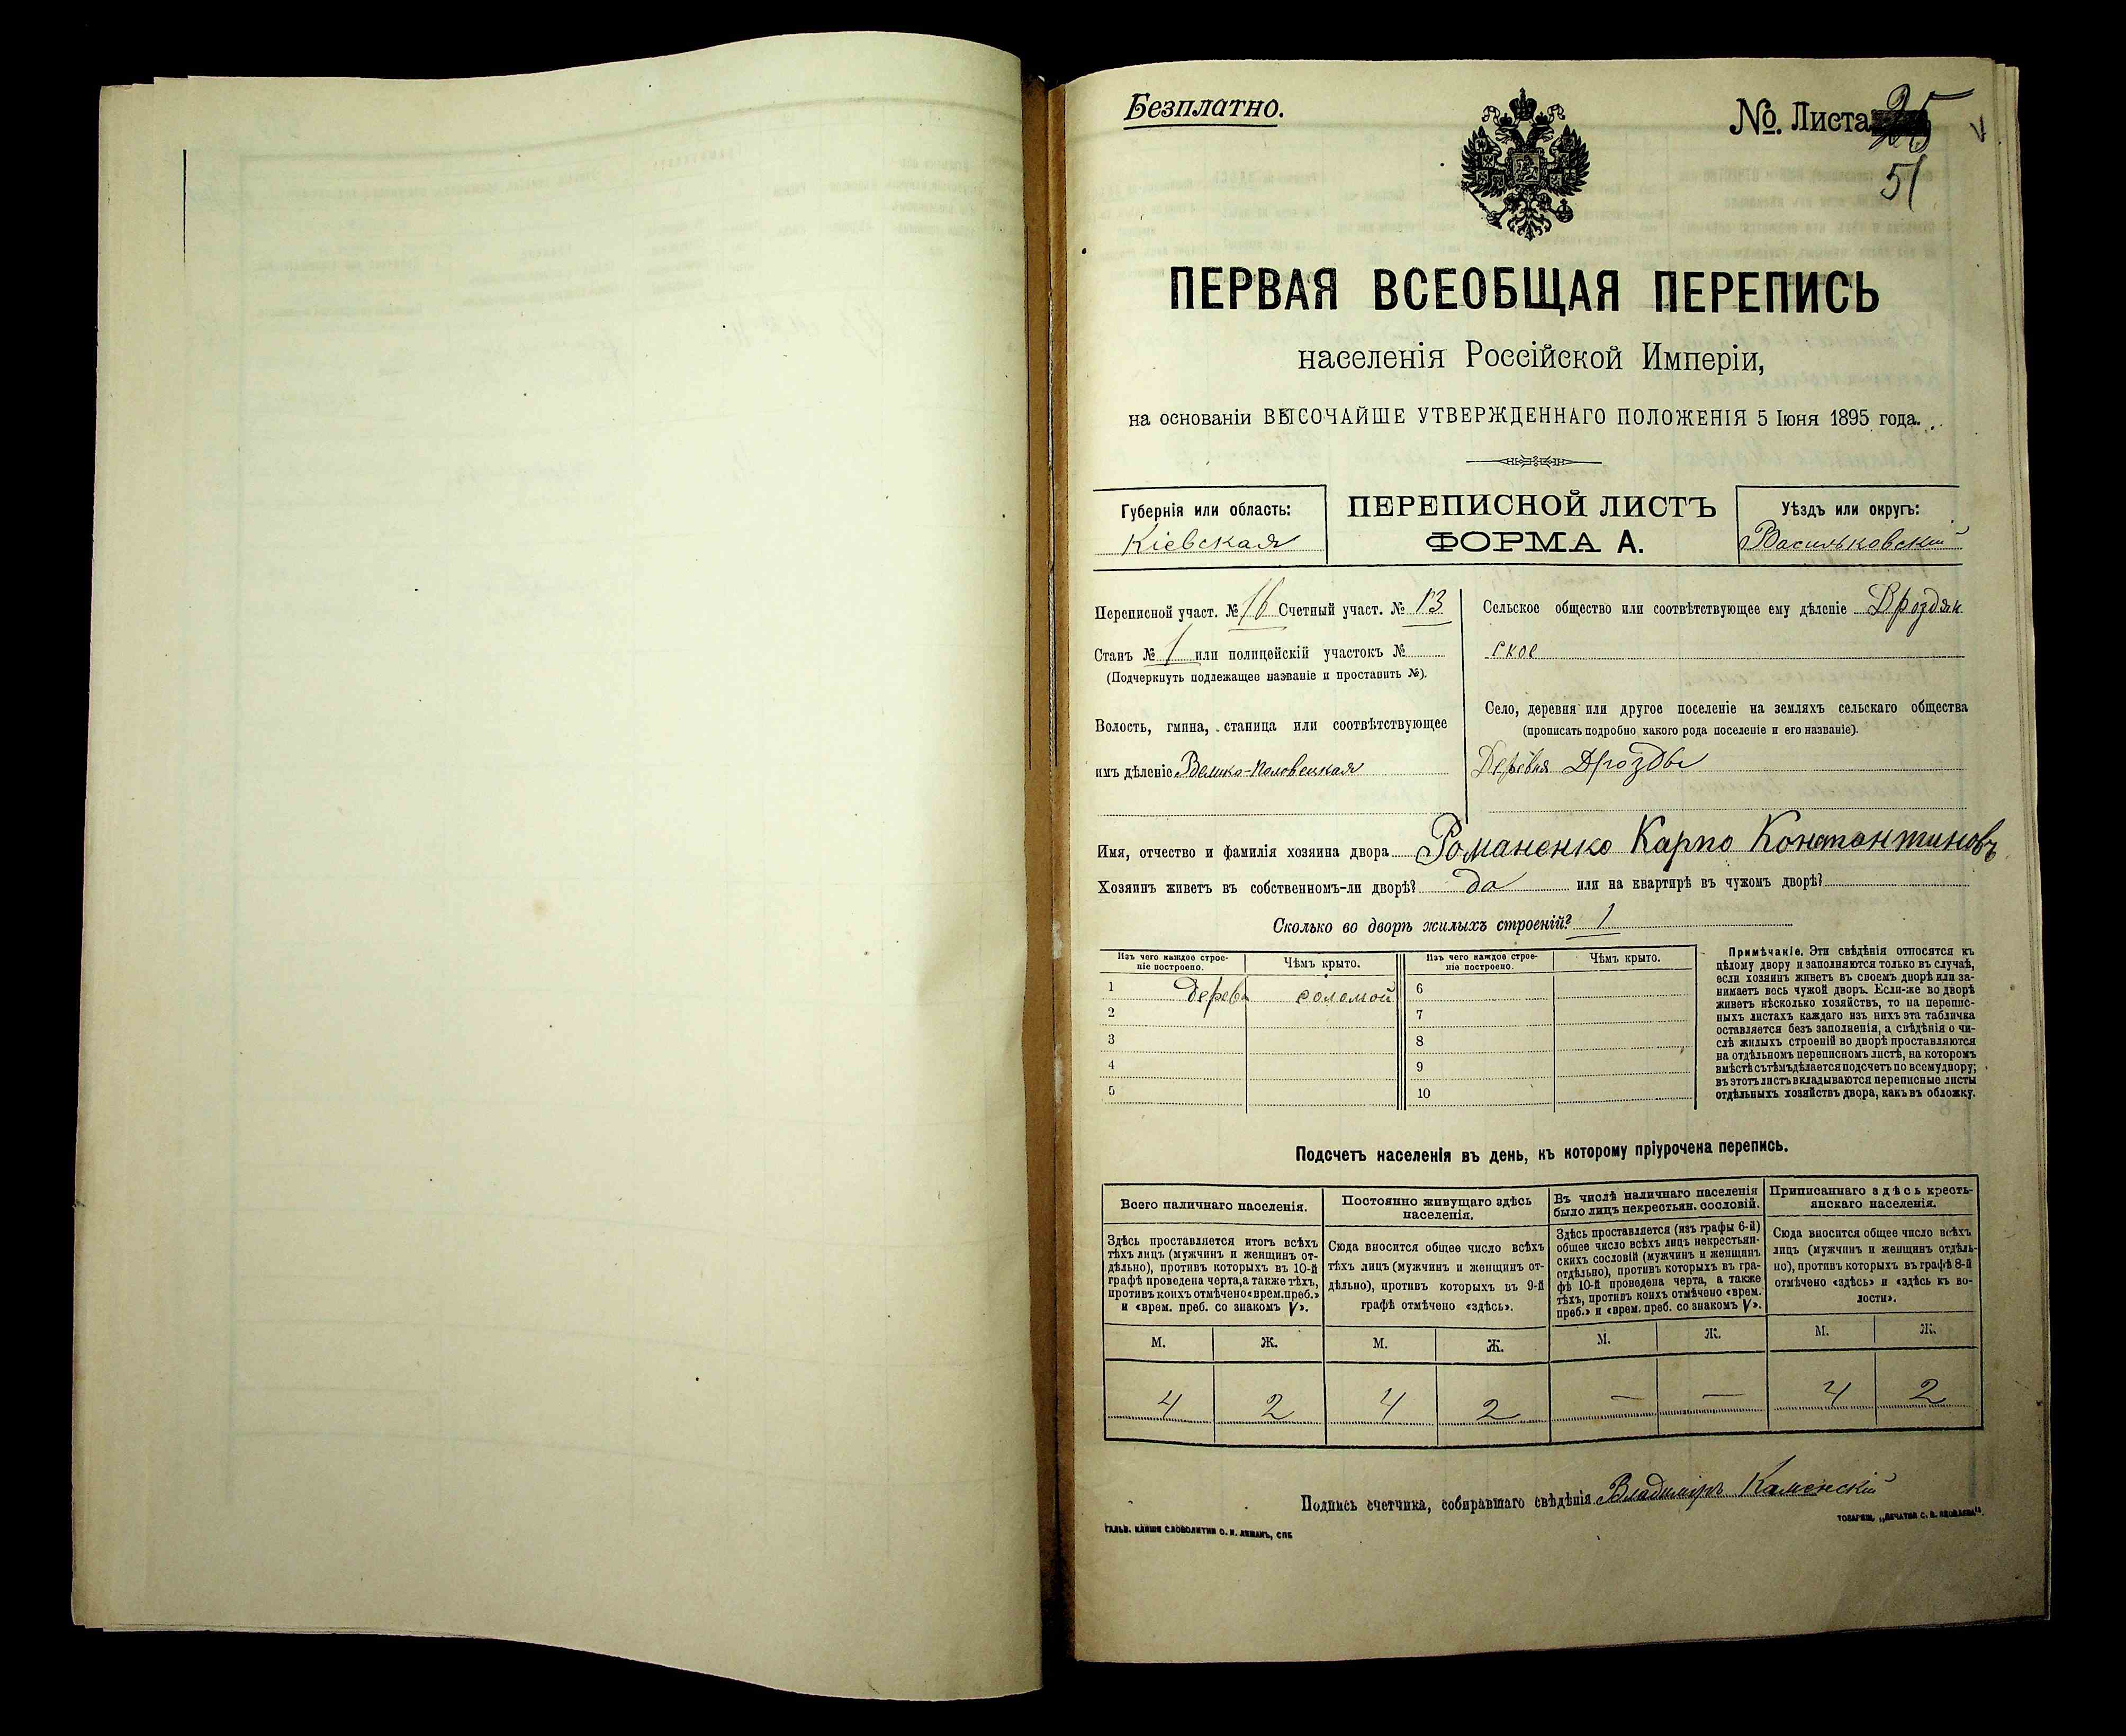 Безплатно.
№ Листа 25
51
ПЕРВАЯ ВСЕОБЩАЯ ПЕРЕПИСЬ
населенія Россійской Имперіи,
на основаніи ВЫСОЧАЙШЕ УТВЕРЖДЕННАГО ПОЛОЖЕНІЯ 5 Іюня 1895 года.
Губернія или область:
Кіевская
ПЕРЕПИСНОЙ ЛИСТЪ
ФОРМА А.
Уѣздъ или округъ:
Васильковскій
Переписной участ. № 16 Счетный участ. № 13
Станъ № 1 или полицейскій участокъ №
(Подчеркнуть подлежащее названіе и проставить №).
Волость, гмина, станица или соотвѣтствующее
имъ дѣленіе Велико-Половецкая
Сельское общество или соотвѣтствующее ему дѣленіе Дроздян
ское
Село, деревня или другое поселеніе на земляхъ сельскаго общества
(прописать подробно какого рода поселеніе и его названіе).
Деревня Дрозды
Имя, отчество и фамилія хозяина двора Романенко Карпо Константиновъ
Хозяинъ живетъ въ собственномъ-ли дворѣ? да или на квартирѣ въ чужомъ дворѣ?
Сколько во дворѣ жилыхъ строеній? 1
Изъ чего каждое строе-
ніе построено.
Чѣмъ крыто.
Изъ чего каждое строе-
ніе построено.
Чѣмъ крыто.
1 дерев соломой 6
2 7
3 8
4 9
5 10
Примѣчаніе. Эти свѣдѣнія относятся къ
цѣлому двору и заполняются только въ случаѣ,
если хозяинъ живетъ въ своемъ дворѣ или за-
нимаетъ весь чужой дворъ. Если-же во дворѣ
живетъ нѣсколько хозяйствъ, то на перепис-
ныхъ листахъ каждаго изъ нихъ эта табличка
оставляется безъ заполненія, а свѣдѣнія о чи-
слѣ жилыхъ строеній во дворѣ проставляются
на отдѣльномъ переписномъ листѣ, на которомъ
вмѣстѣ съ тѣмъ дѣлается подсчетъ по всему двору;
въ этотъ листъ вкладываются переписные листы
отдѣльныхъ хозяйствъ двора, какъ въ обложку.
Подсчетъ населенія въ день, къ которому пріурочена перепись.
Всего наличнаго населенія.
Здѣсь проставляется итогъ всѣхъ
тѣхъ лицъ (мужчинъ и женщинъ от-
дѣльно), противъ которыхъ въ 10-й
графѣ проведена черта, а также тѣхъ,
противъ коихъ отмѣчено «врем. преб.»
и «врем. преб. со знакомъ V».
Постоянно живущаго здѣсь
населенія.
Сюда вносится общее число всѣхъ
тѣхъ лицъ (мужчинъ и женщинъ от-
дѣльно), противъ которыхъ въ 9-й
графѣ отмѣчено «здѣсь».
Въ числѣ наличнаго населенія
было лицъ некрестьян. сословій.
Здѣсь проставляется (изъ графы 6-й)
общее число всѣхъ лицъ некрестьян-
скихъ сословій (мужчинъ и женщинъ
отдѣльно), противъ которыхъ въ гра-
фѣ 10-й проведена черта, а также
тѣхъ, противъ коихъ отмѣчено «врем.
преб.» и «врем. преб. со знакомъ V».
Приписаннаго здѣсь кресть-
янскаго населенія.
Сюда вносится общее число всѣхъ
лицъ (мужчинъ и женщинъ отдѣль-
но), противъ которыхъ въ графѣ 8-й
отмѣчено «здѣсь» и «здѣсь къ во-
лости».
М. Ж. М. Ж. М. Ж. М. Ж.
4 2 4 2 — — 4 2
Подпись счетчика, собиравшаго свѣдѣнія Владиміръ Каменскій
ГАЛЬВ. КЛИШЕ СЛОВОЛИТНИ О. И. ЛЕМАНЪ, СПБ
ТОВАРИЩ. „ПЕЧАТНЯ С. П. ЯКОВЛЕВА“.